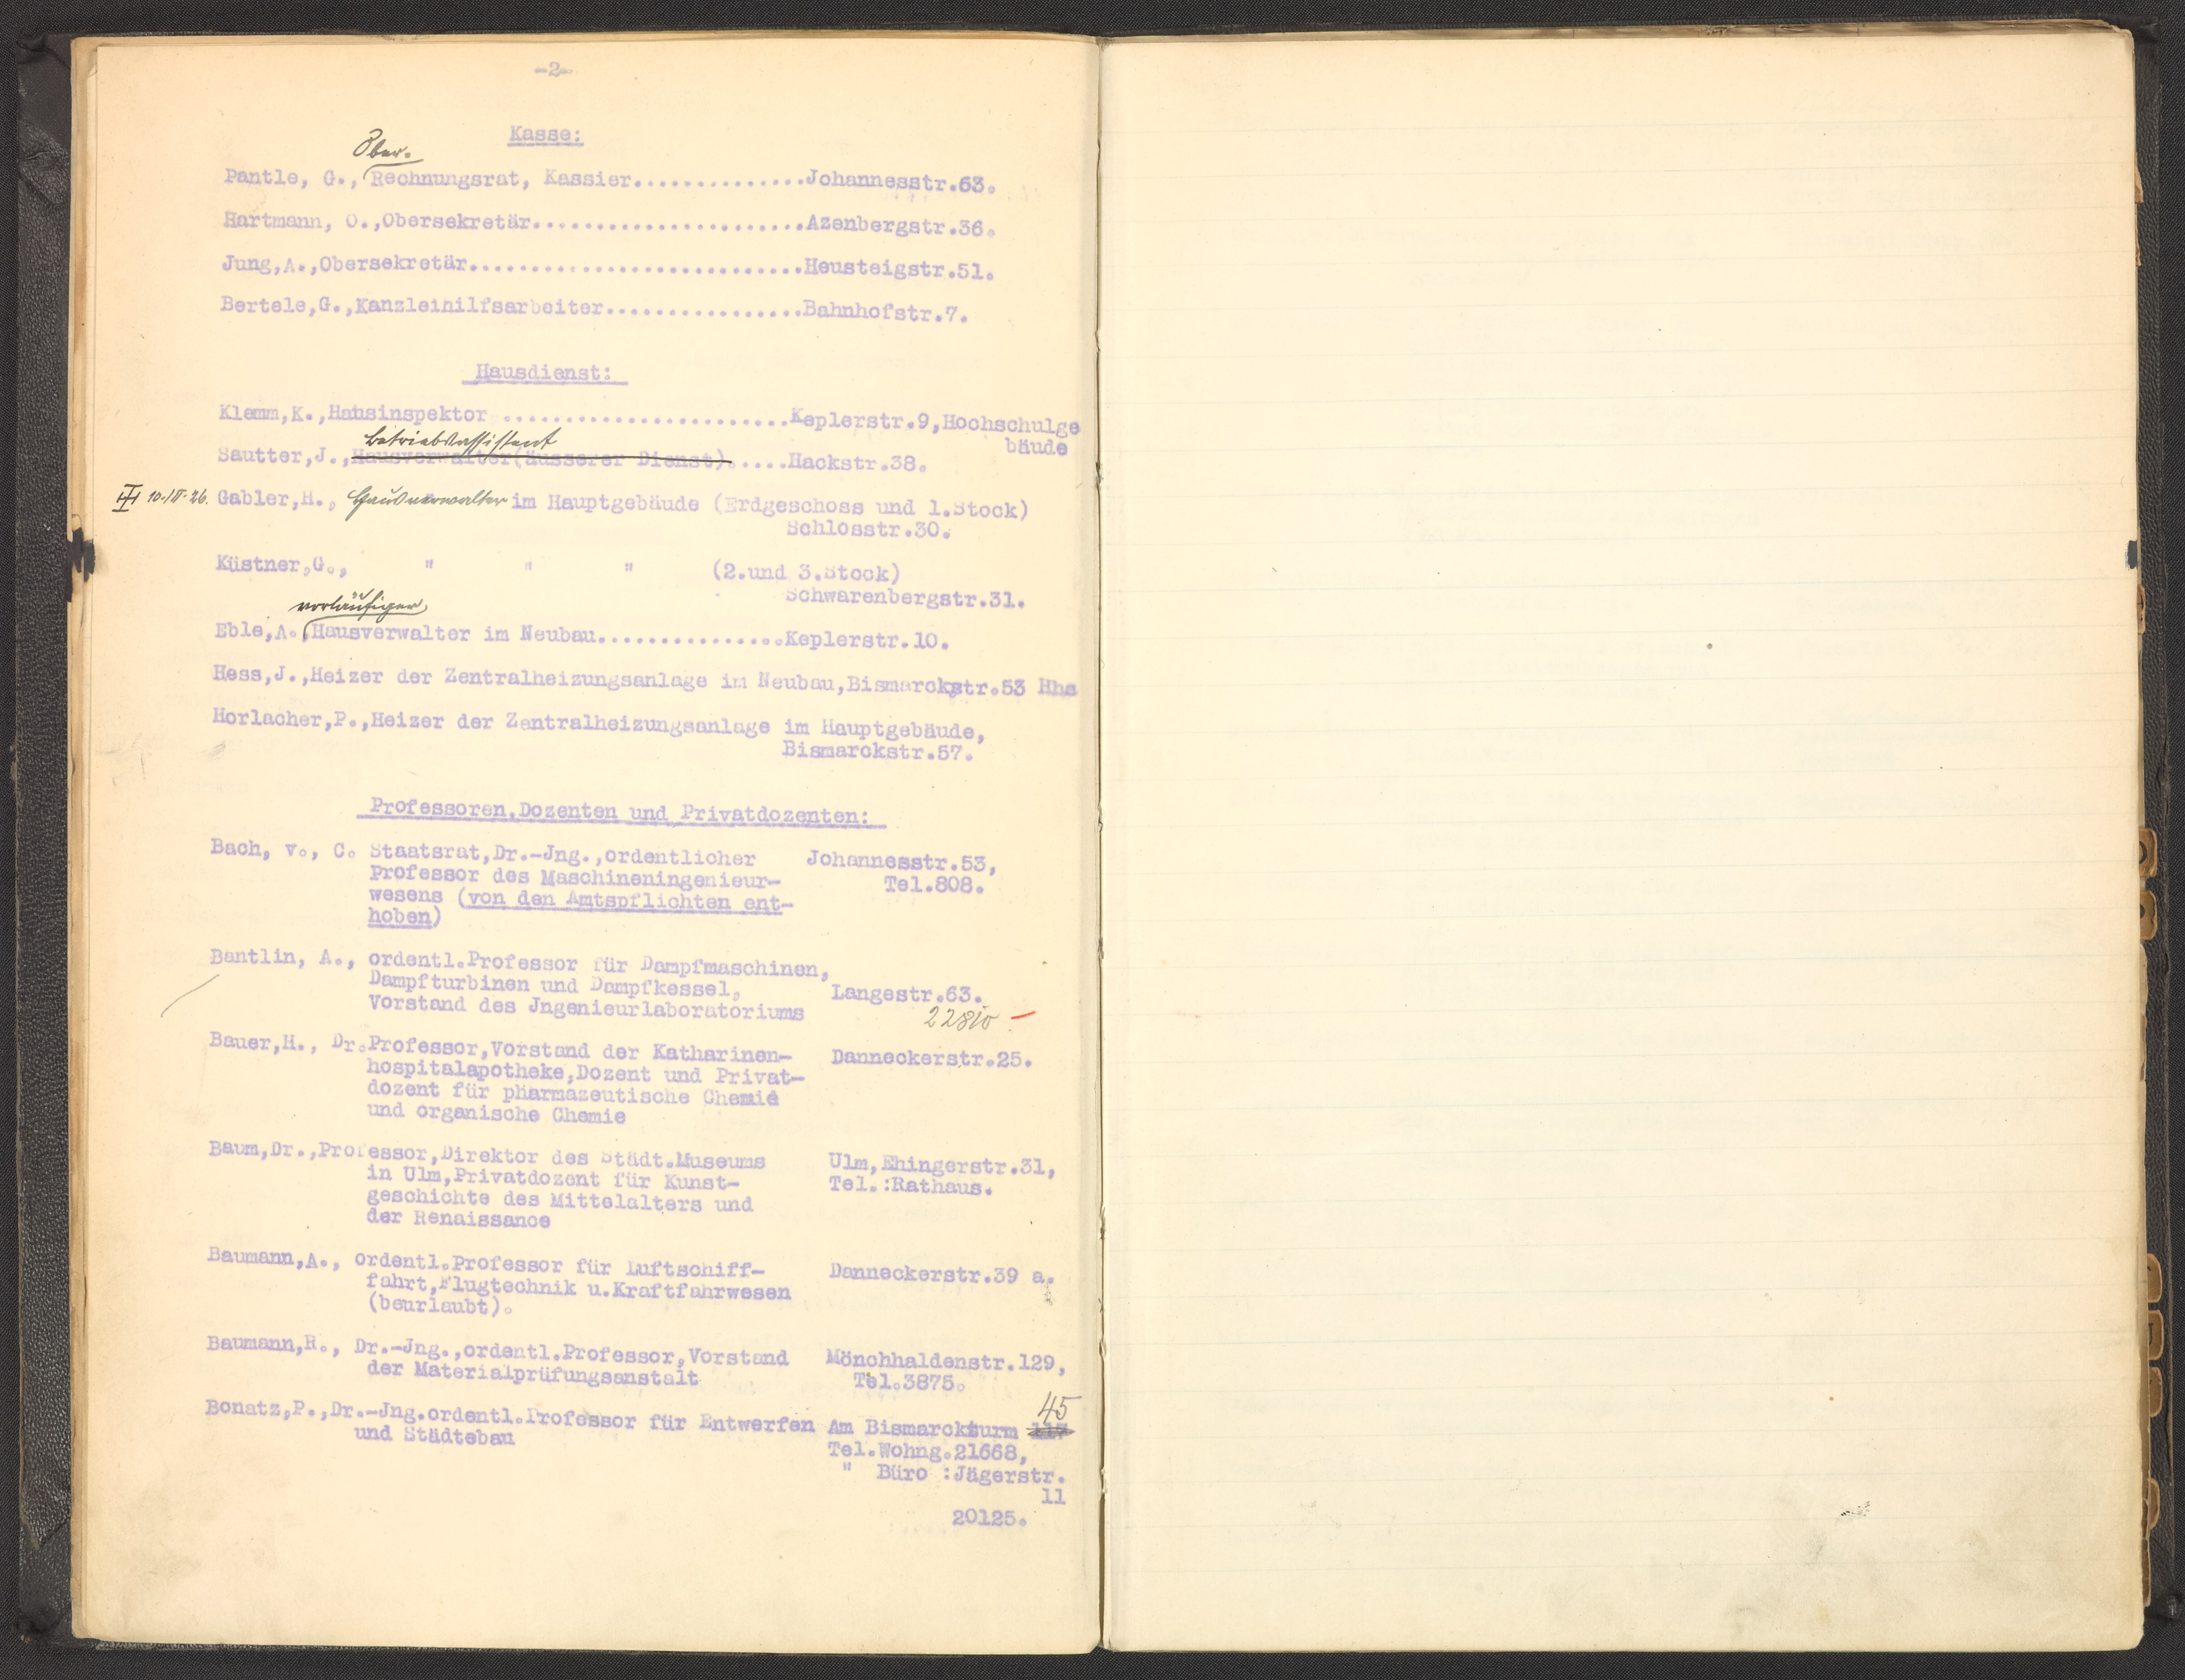 -2-
Kasse:
Ober.
Pantle, G., Rechnungsrat, Kassier..............Johannesstr.63.
Hartmann, O.,Obersekretär......................Azenbergstr.36.
Jung,A.,Obersekretär...........................Heusteigstr.51.
Bertele,G.,Kanzleihilfsarbeiter................Bahnhofstr.7.
Hausdienst:
Klemm,K.,Hausinspektor .......................Keplerstr.9,Hochschulge
bäude
Betriebsassistent
Sautter,J.,Hausverwalter(äusserer Dienst).....Hackstr.38.
10.III.26. Gabler,H., Hausverwalter im Hauptgebäude (Erdgeschoss und 1.Stock)
Schlosstr.30.
Küstner,G., " " " (2.und 3.Stock)
Schwarenbergstr.31.
vorläufiger
Eble,A.,Hausverwalter im Neubau...............Keplerstr.10.
Hess,J.,Heizer der Zentralheizungsanlage im Neubau,Bismarckstr.53 Hhs
Horlacher,P.,Heizer der Zentralheizungsanlage im Hauptgebäude,
Bismarckstr.57.
Professoren,Dozenten und Privatdozenten:
Bach, v., C. Staatsrat,Dr.-Jng.,ordentlicher Johannesstr.53,
Professor des Maschineningenieur- Tel.808.
wesens (von den Amtspflichten ent-
hoben)
Bantlin, A., ordentl.Professor für Dampfmaschinen,
Dampfturbinen und Dampfkessel, Langestr.63.
Vorstand des Jngenieurlaboratoriums 22810 -
Bauer,H., Dr.Professor,Vorstand der Katharinen- Danneckerstr.25.
hospitalapotheke,Dozent und Privat-
dozent für pharmazeutische Chemie
und organische Chemie
Baum,Dr.,Professor,Direktor des Städt.Museums Ulm,Ehingerstr.31,
in Ulm,Privatdozent für Kunst- Tel.:Rathaus.
geschichte des Mittelalters und
der Renaissance
Baumann,A., ordentl.Professor für Luftschiff- Danneckerstr.39 a.
fahrt,Flugtechnik u.Kraftfahrwesen
(beurlaubt).
Baumann,R., Dr.-Jng.,ordentl.Professor,Vorstand Mönchhaldenstr.129,
der Materialprüfungsanstalt Tel.3875.
45
Bonatz,P.,Dr.-Jng.ordentl.Professor für Entwerfen Am Bismarckturm
und Städtebau Tel.Wohng.21668,
" Büro :Jägerstr.
11
20125.